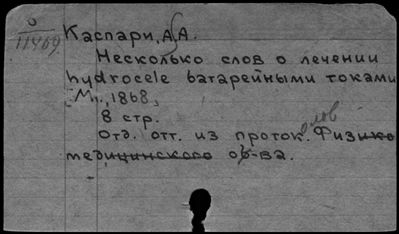 й
11469
Каспари, А.А.
Несколько слов о лечении
hydrocele батарейными токами
М., 1868,
8 стр.
Отд. отт. из проток. Физико
медицинского об-ва.